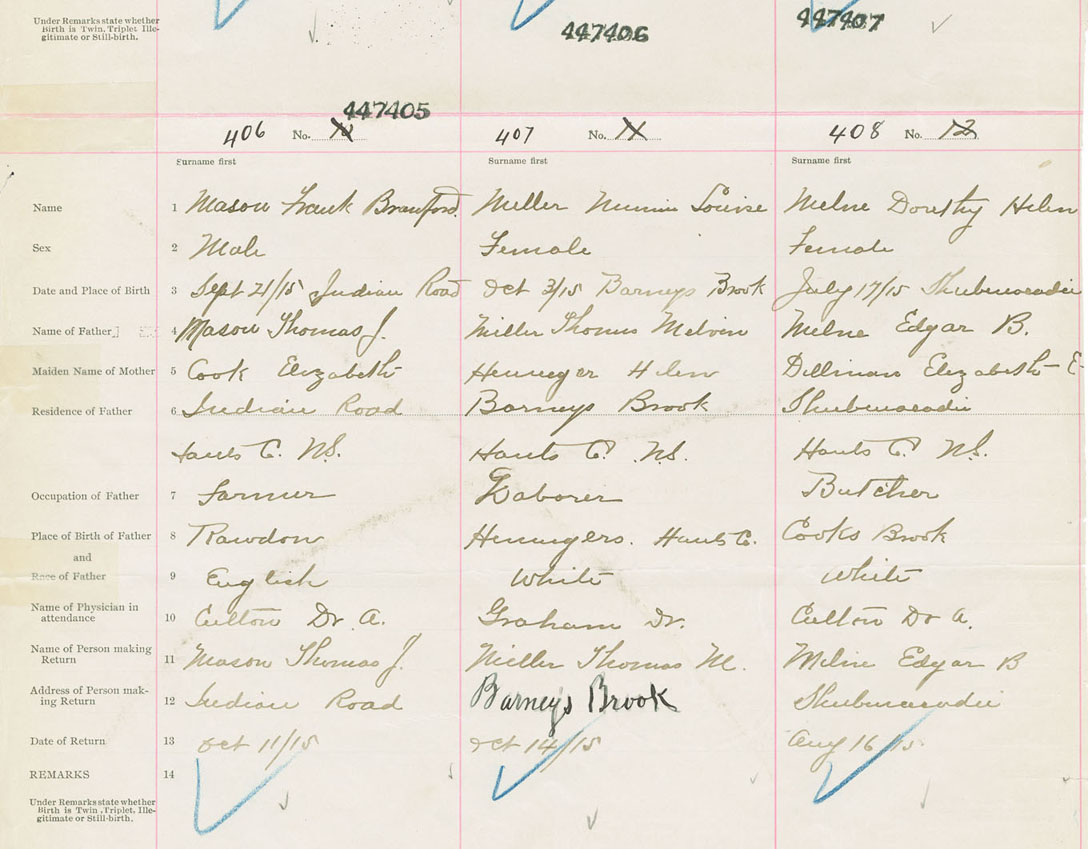 Under Remarks state whether
Birth is Twin, Triplet, Ille-
gitimate or Still-birth.
447406
447407
447405
406 No. 10
407 No. 11
408 No. 12
Surname first Surname first Surname first
Name 1 Mason Frank Branford. Miller Minnie Louise Milne Dorothy Helen
Sex 2 Male Female Female
Date and Place of Birth 3 Sept 21/15 Indian Road Oct 3/15 Barneys Brook July 17/15 Shubenacadie
Name of Father 4 Mason Thomas J. Miller Thomas Melvin Milne Edgar B.
Maiden Name of Mother 5 Cook Elizabeth Henneger Helen Dillman Elizabeth E.
Residence of Father 6 Indian Road Barneys Brook Shubenacadie
Hants C. N.S. Hants C. N.S. Hants C. N.S.
Occupation of Father 7 Farmer Laborer Butcher
Place of Birth of Father 8 Rawdon Hennigers. Hants C. Cooks Brook
and
Race of Father 9 English White White
Name of Physician in
attendance 10 Culton Dr. A. Graham Dr. Culton Dr A.
Name of Person making
Return 11 Mason Thomas J. Miller Thomas M. Milne Edgar B
Address of Person mak-
ing Return 12 Indian Road Barneys Brook Shubenacadie
Date of Return 13 Oct 11/15 Oct 14/15 Aug 16/15
REMARKS 14
Under Remarks state whether
Birth is Twin, Triplet, Ille-
gitimate or Still-birth.